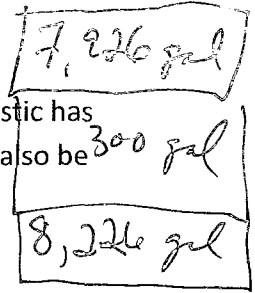 7,926 gal
stic has
also be 300 gal
8,226 gal